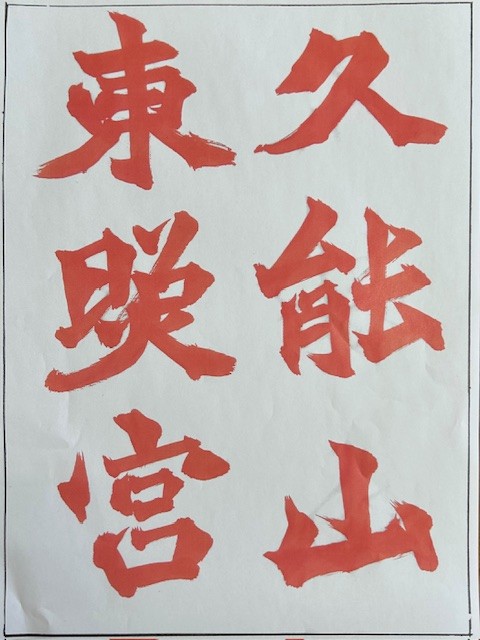 久能山
東照宮